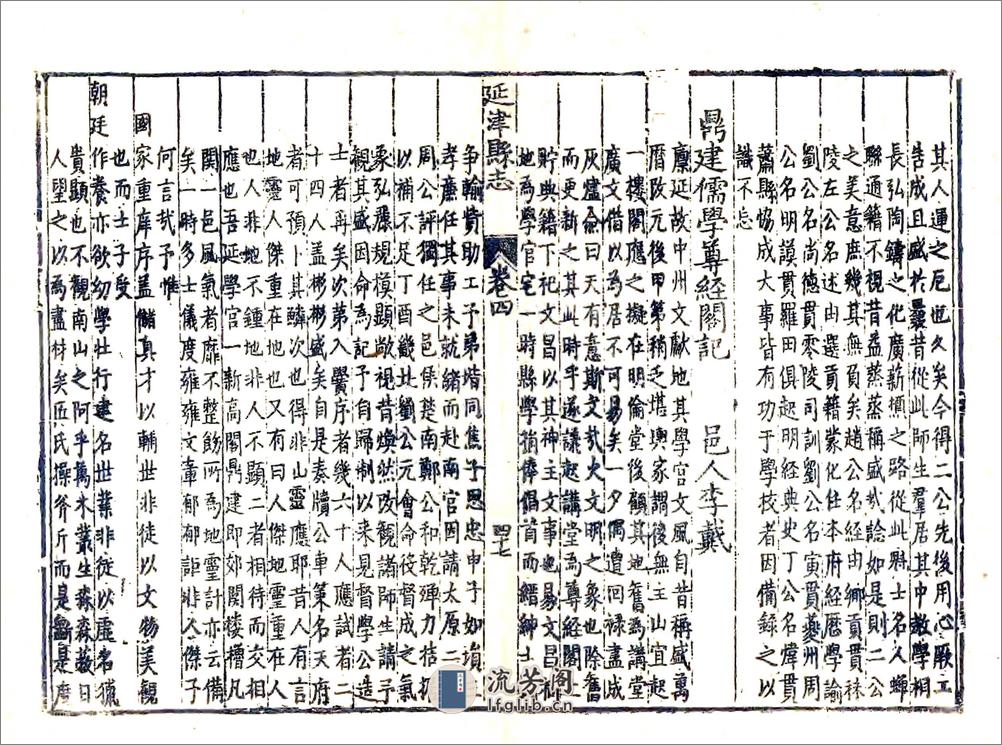 其人運之厄也久矣今得二公先後用心厥工
告成且盛於曩昔從此師生羣居其中教學相
長弘陶鑄之化廣薪槱之路從此縣士名人蟬
聯通籍不視昔益蒸蒸稱盛哉諗如是則二公
之美意庶幾其無負矣趙公名經由鄉貢貫秣
陵左公名述由選貢籍蒙化任本府經歷學諭
劉公名尚德貫零陵司訓劉公名寅貫夔州周
公名明謨貫羅田俱起明經典史丁公名煒貫
蕭縣協成大事皆有功于學校者因備錄之以
識不忘
鼎建儒學尊經閣記 邑人李戴
廩延故中州文獻地其學宮文風自昔稱盛萬
曆改元後甲第稍乏堪輿家謂後無主山宜起
一樓閣應之擬在明倫堂後顧其地舊為講堂
廣文借以為居不可易矣一夕偶遭回祿盡成
灰燼僉曰天有意斯文哉火文明之象也除舊
而更新之其此時乎遂議起講堂為尊經閣上
貯典籍下祀文昌以其神主文事也易文昌祠
地為學官宅一時縣學捐俸倡首而縉紳士
爭輸貲助工予弟偕同焦子思忠申子如塤
孝廉任其事未就緒而赴南宮因請太原二
周公評獨任之邑侯楚南鄭公和乾殫力
以補不足丁酉畿北劉公元會命役督成之氣
象弘麗規模顯敞視昔煥然改觀諸師生請予
觀其盛因命為記予自歸制以來見督學公造
士者再矣次第入黌序者幾六十人應試者二
十四人蓋彬彬盛矣自是奏牘公車策名天府
者可預卜其鱗次也得非山靈應耶昔人有言
地靈人傑重在地也又有曰人傑地靈重在言
也人非地不鍾地非人不顯二者相待而交相
應也吾延學宮一新高閣鼎建即郊關樓櫓凡
關一邑風氣者靡不整飭所為地靈計亦云備
矣一時多士儀度雍雍文章郁郁詎非人傑乎
何言哉予惟
國家重庠序蓋儲真才以輔世非徒以文物美觀
也而士子受
朝廷作養亦欲幼學壯行建名世業非徒以虛名獵
貴顯也不觀南山之阿乎萬木叢生森森蔽日
人望之以為盡材矣匠氏操斧斤而是斷是度
延津縣志
卷四
四七
流芳阁
lfglib.cn